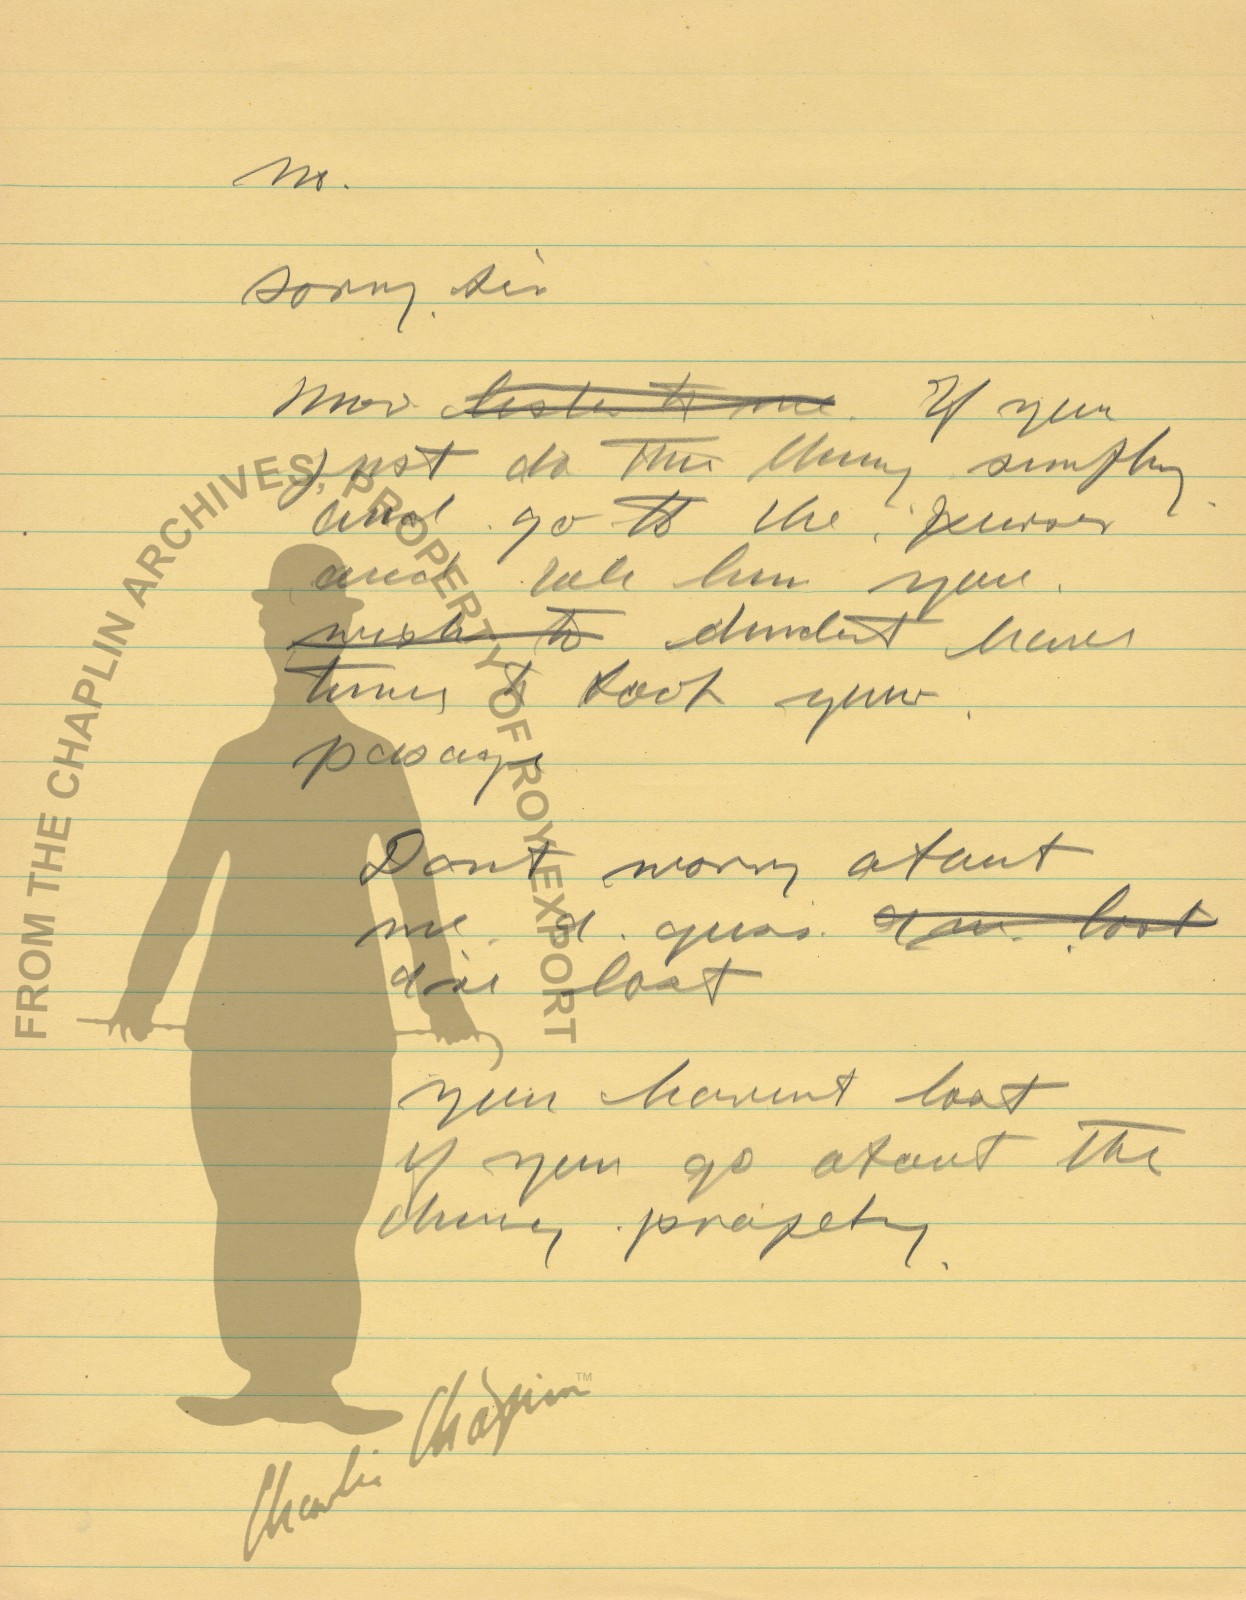 No.
Sorry, sir
Now listen to me. If you
just do this thing simply
and go to the purser
and tell him you
wish to didn't have
time to book your
passage
Dont worry about
me. I guess I've lost
I've lost
you havent lost
if you go about the
thing property.
FROM THE CHAPLIN ARCHIVES, PROPERTY OF ROY EXPORT
Charlie Chaplin™